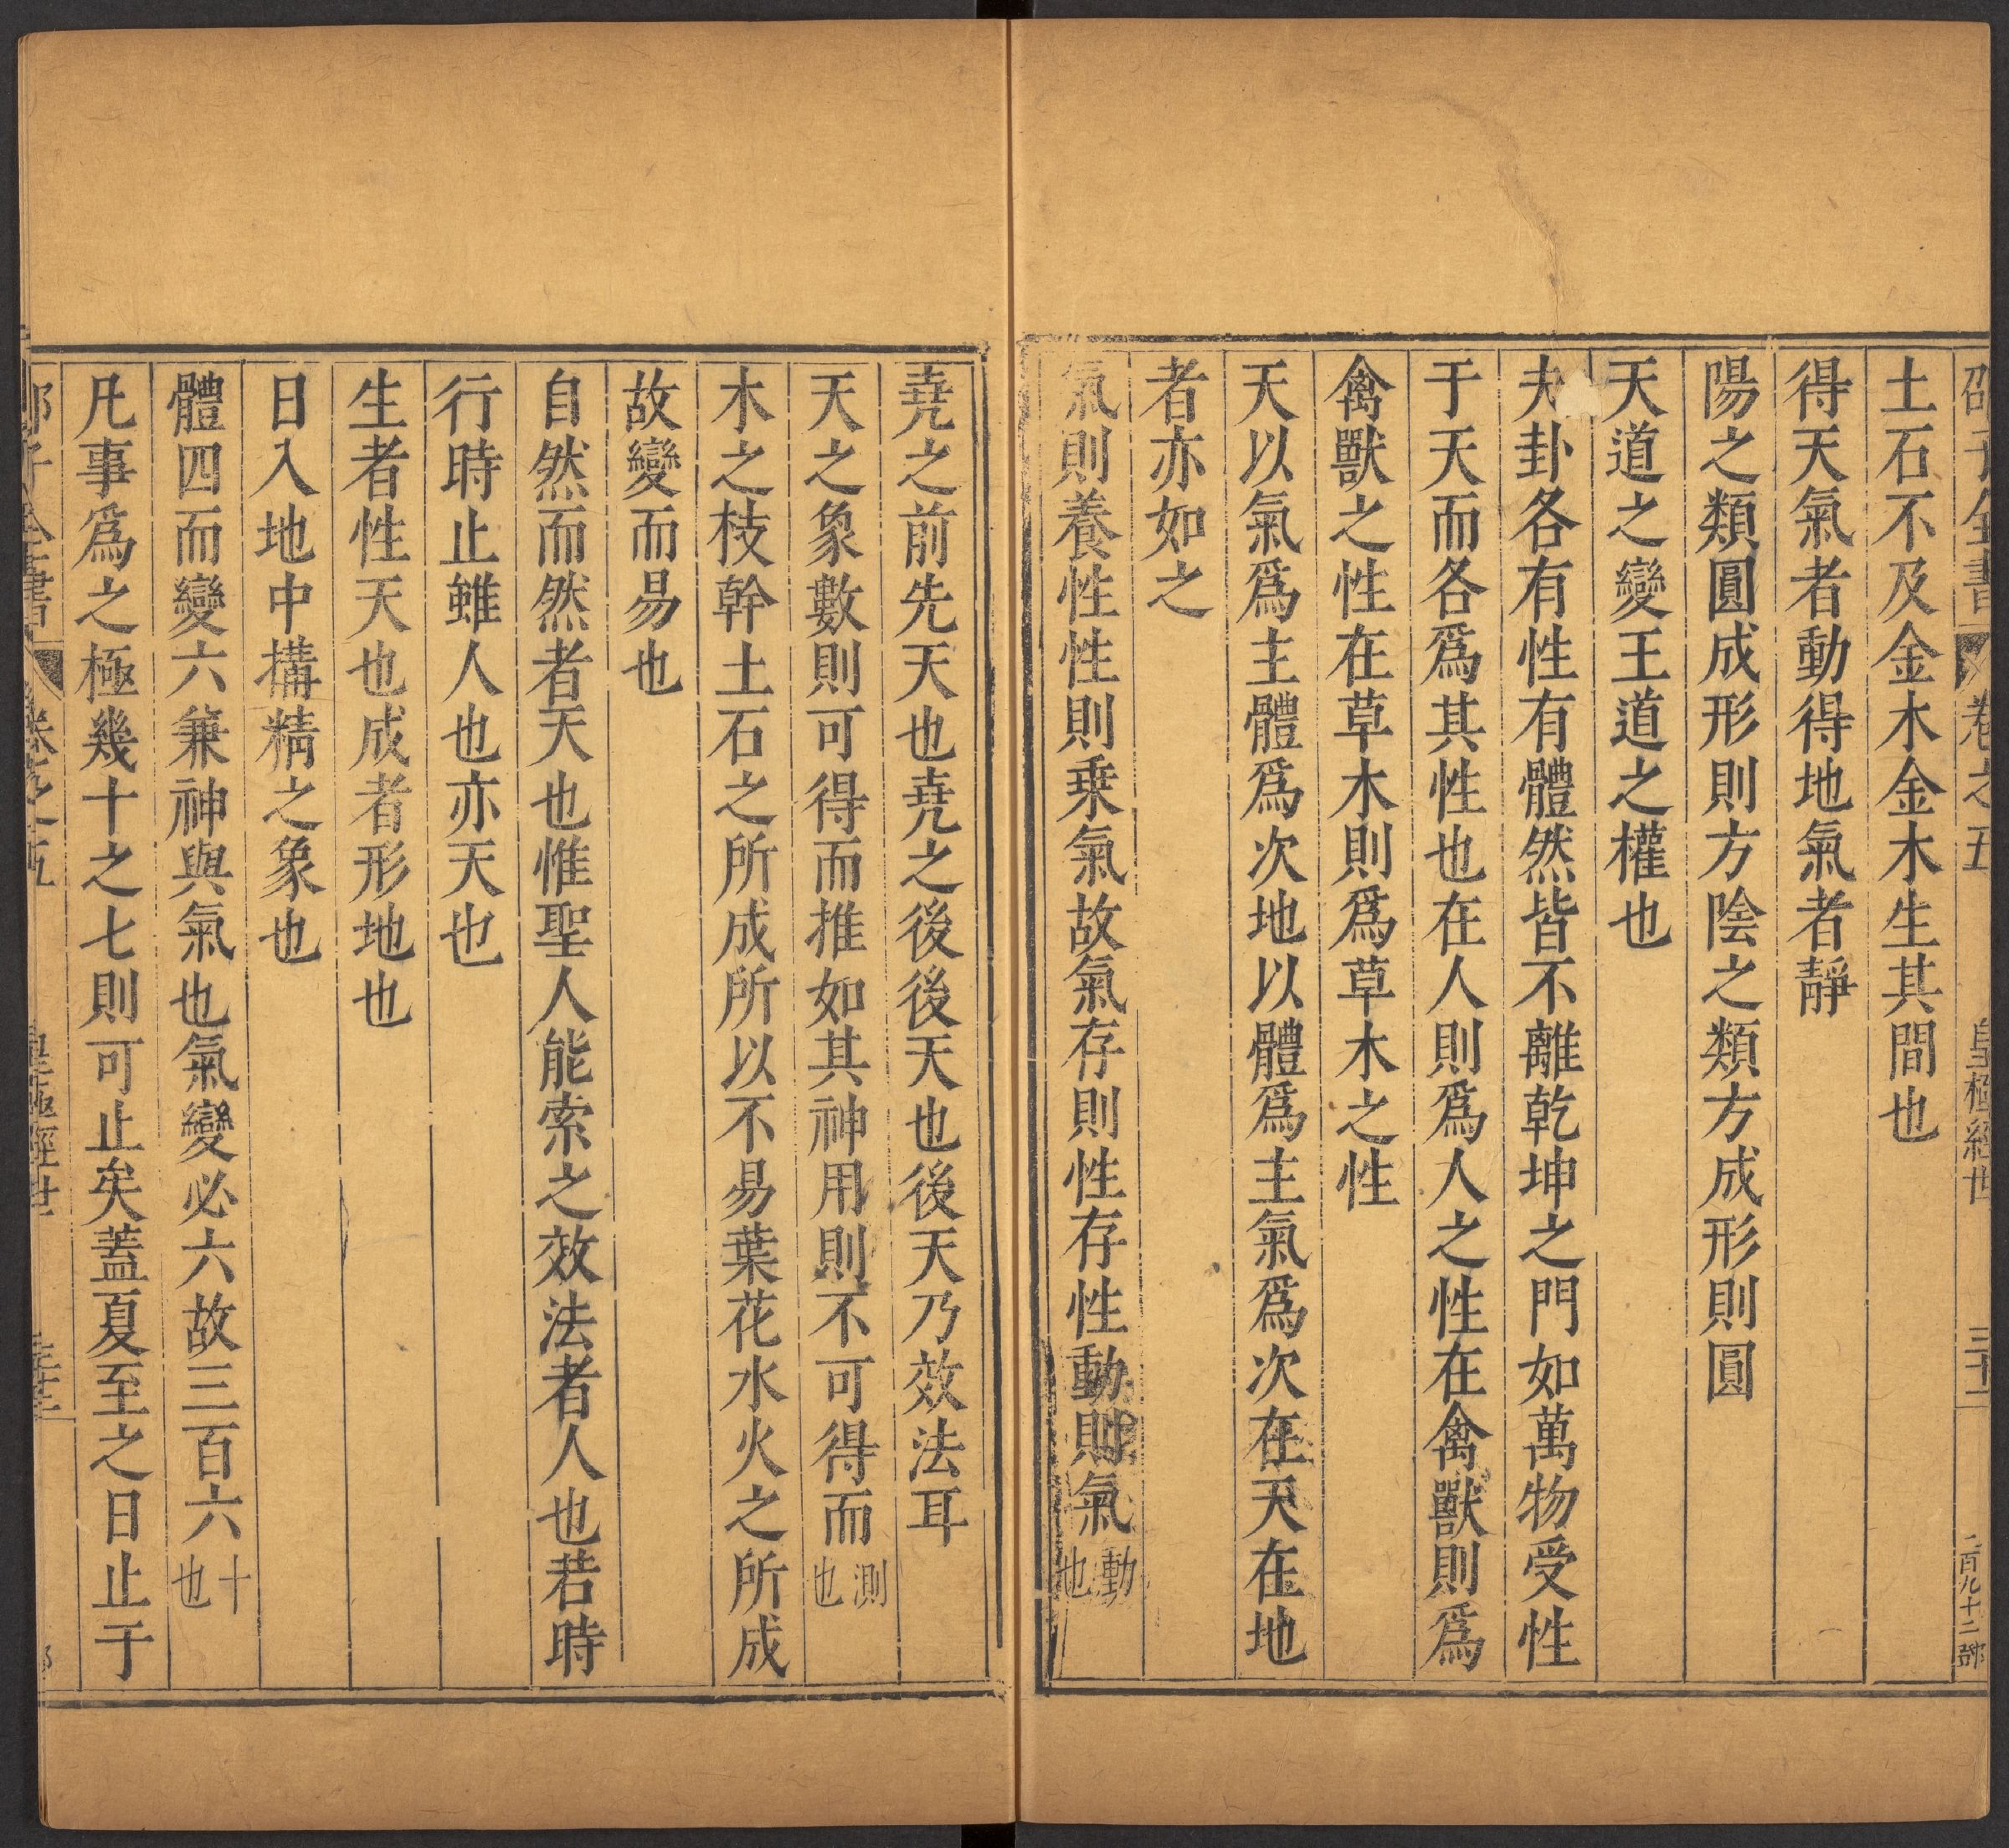 邵子全書 卷之五 皇極經世 三十二 二百九十二 鄧
土石不及金木金木生其間也
得天氣者動得地氣者靜
陽之類圓成形則方陰之類方成形則圓
天道之變王道之權也
夫卦各有性有體然皆不離乾坤之門如萬物受性
于天而各爲其性也在人則爲人之性在禽獸則爲
禽獸之性在草木則爲草木之性
天以氣爲主體爲次地以體爲主氣爲次在天在地
者亦如之
氣則養性性則乗氣故氣存則性存性動則氣動也
堯之前先天也堯之後後天也後天乃效法耳
天之象數則可得而推如其神用則不可得而測也
木之枝幹土石之所成所以不易葉花水火之所成
故變而易也
自然而然者天也惟聖人能索之效法者人也若時
行時止雖人也亦天也
生者性天也成者形地也
日入地中搆精之象也
體四而變六兼神與氣也氣變必六故三百六十也
凡事爲之極幾十之七則可止矣蓋夏至之日止于
邵子全書 卷之五 皇極經世